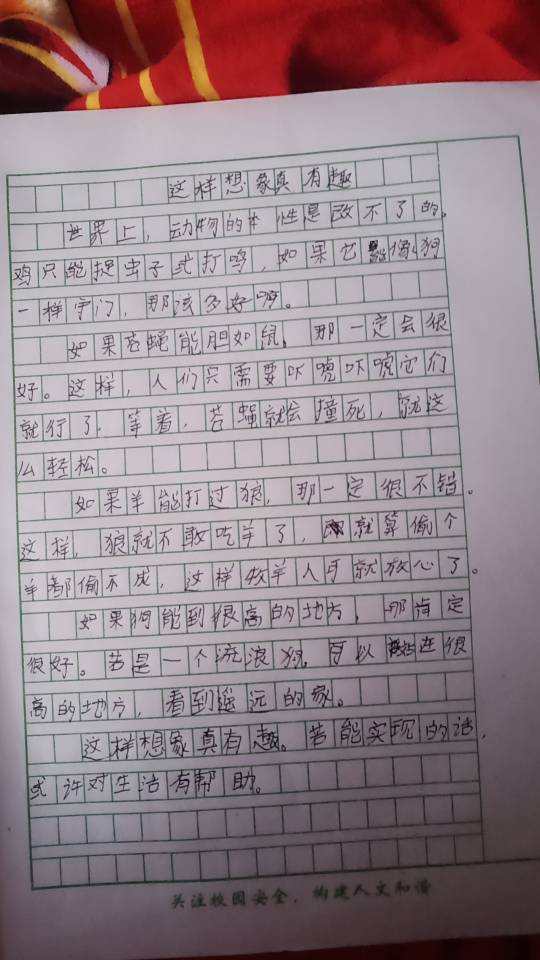 这样想象真有趣
世界上，动物的本性是改不了的。
鸡只能捉虫子或打鸣，如果它能像狗
一样守门，那该多好啊。
如果苍蝇能胆如鼠，那一定会很
好。这样，人们只需要吓唬吓唬它们
就行了，等着，苍蝇就会撞死，就这
么轻松。
如果羊能打过狼，那一定很不错。
这样，狼就不敢吃羊了，就算偷个
羊都偷不成，这样牧羊人可就放心了。
如果狗能到很高的地方，那肯定
很好。若是一个流浪狗，可以站在很
高的地方，看到遥远的家。
这样想象真有趣。若能实现的话，
或许对生活有帮助。
关注校园安全，构建人文和谐